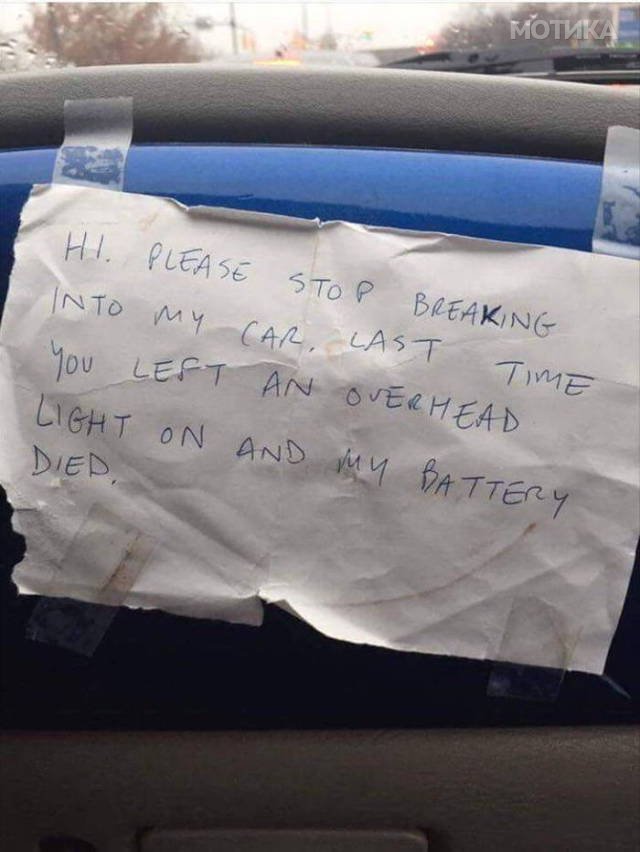 МОТИКА
HI. PLEASE STOP BREAKING
INTO MY CAR. LAST TIME
YOU LEFT AN OVERHEAD
LIGHT ON AND MY BATTERY
DIED.